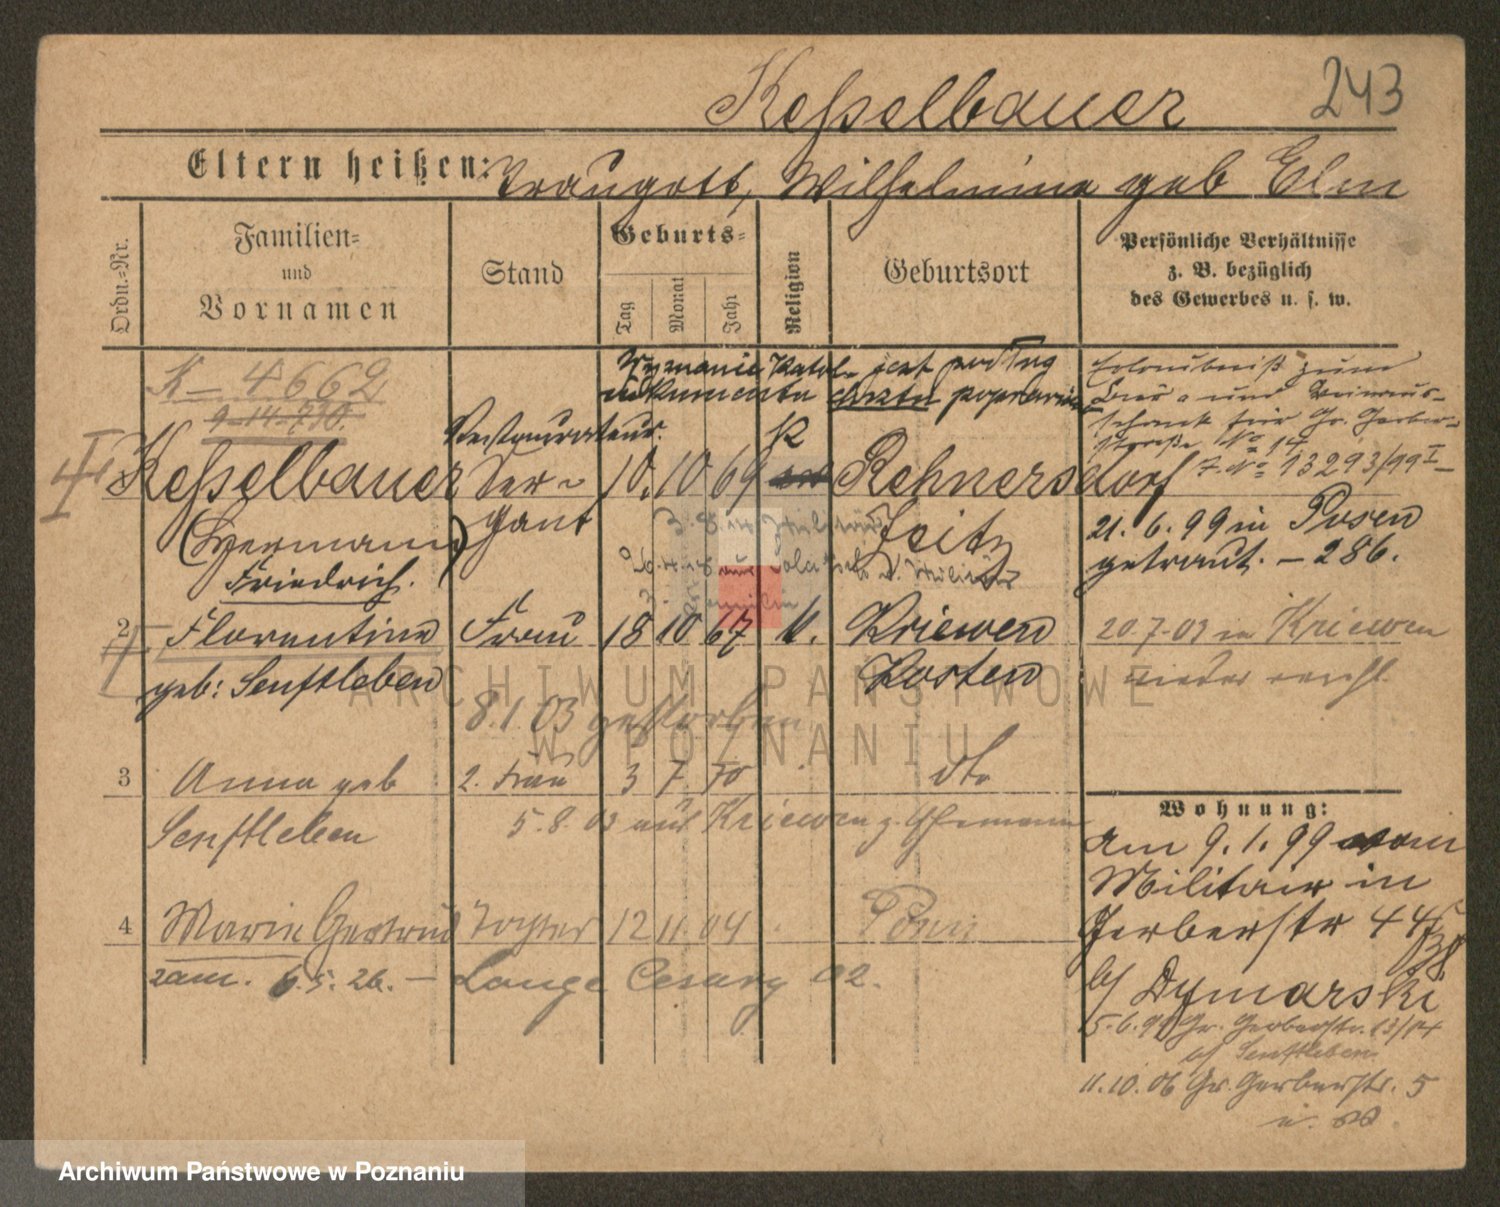 243
Kesselbauer
Eltern heißen: Traugott, Wilhelmine geb Elm
Ordn.-Nr.
Familien-
und
Vornamen
Stand
Geburts-
Tag
Monat
Jahr
Religion
Geburtsort
Persönliche Verhältnisse
z. B. bezüglich
des Gewerbes u. s. w.
K – 4662
9-14-710.
Wyznanie katol. jest podług
dokumentu chrztu
Erlaubniß zum
Bier- und Weinaus-
schank für Gr. Gerber-
straße No 14
J. No 13293/99 I
I
Kesselbauer
(Hermann)
Friedrich.
Restaurateur.
Ser-
gant
10. 10 69
K
Rehnersdorf
Zeitz
21. 6. 99 in Posen
getraut. – 286.
2
Florentine
geb: Senftleben
Frau
18 10 67
K.
Kriewen
Kosten
20.7.03 in Kriewen
wieder
8.1.03 gestorben
3
Anna geb
Senftleben
2. Frau
3 7. 70
dto
5.8.03 aus Kriewen z. Ehemann
4
Marie Gertrud
Tochter
12 11 04
Posen
zam. 6.5.26. – Lange Cesary 02.
Wohnung:
Am 9. 1. 99 vom
Militair in
Gerberstr 44
b/ Dymarski
5.6.99 Gr. Gerberstr. 13/14
b/ Senftleben
11.10.06 Gr. Gerberstr. 5
ARCHIWUM PAŃSTWOWE
W POZNANIU
Archiwum Państwowe w Poznaniu